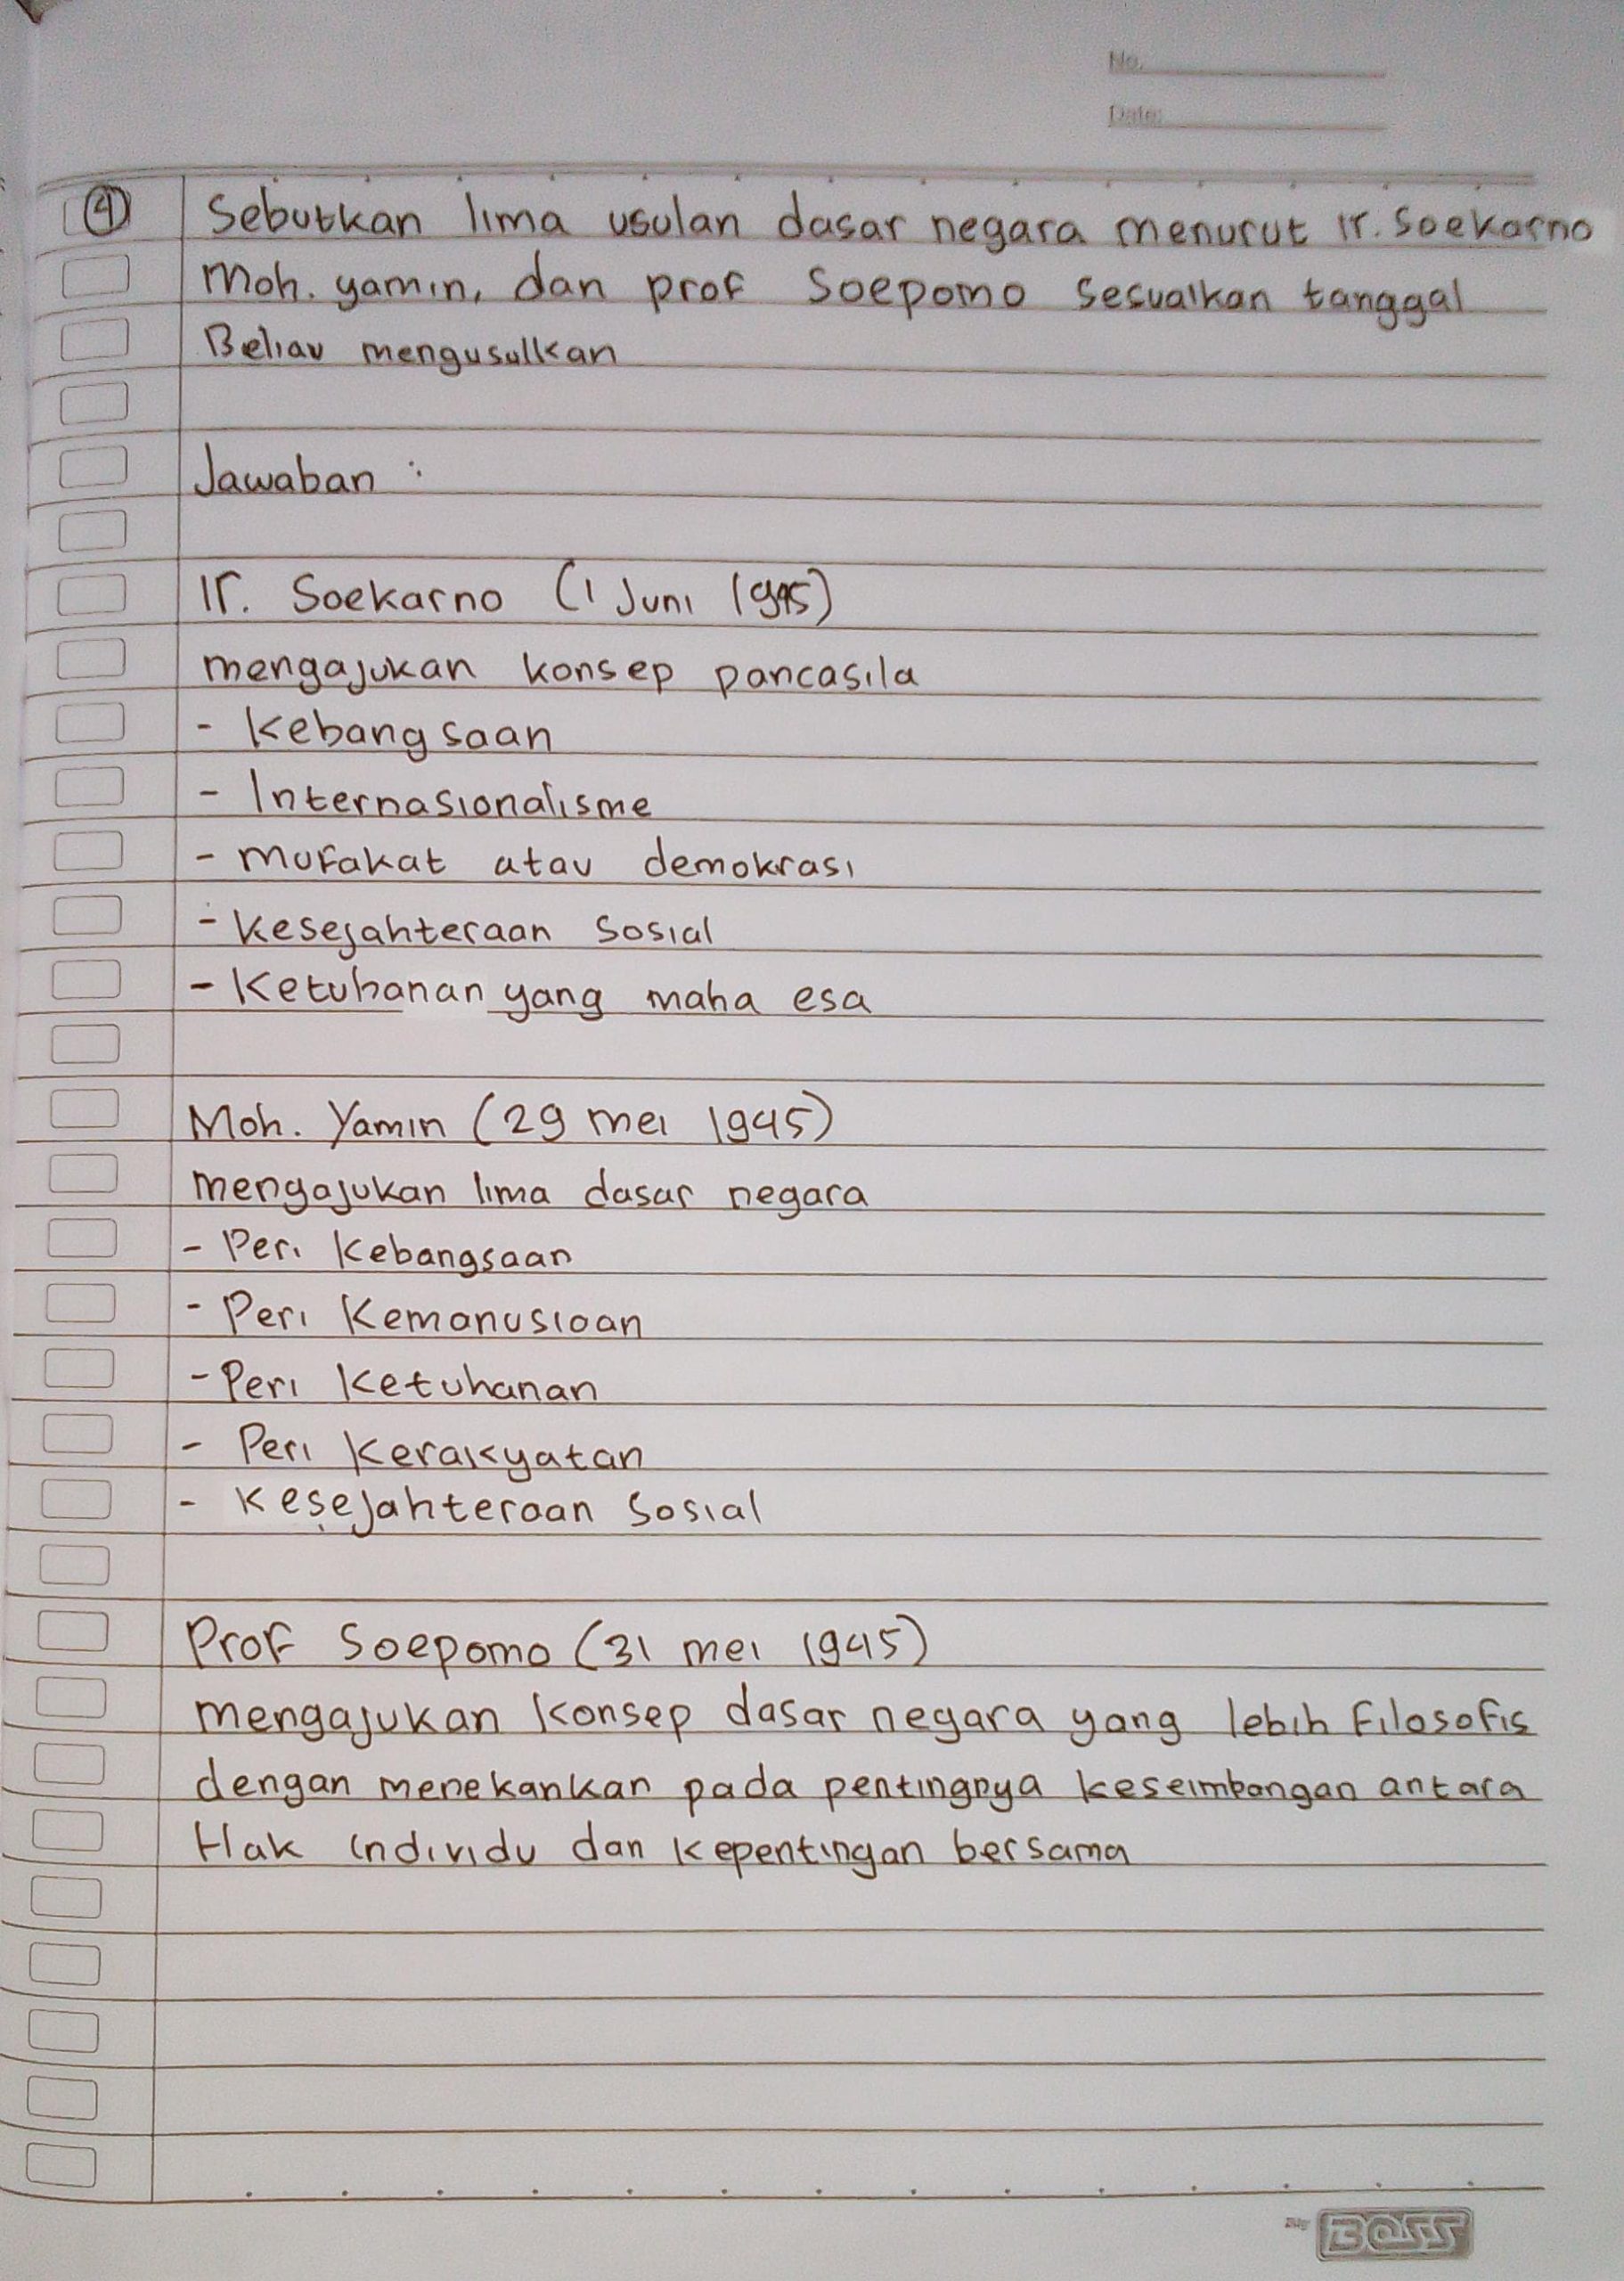 No.
Date:
4 Sebutkan lima usulan dasar negara menurut Ir. Soekarno
Moh. yamin, dan prof Soepomo Sesuaikan tanggal
Beliau mengusulkan
Jawaban :
Ir. Soekarno (1 Juni 1945)
mengajukan konsep pancasila
- Kebangsaan
- Internasionalisme
- mufakat atau demokrasi
- Kesejahteraan Sosial
- Ketuhanan yang maha esa
Moh. Yamin (29 mei 1945)
mengajukan lima dasar negara
- Peri Kebangsaan
- Peri Kemanusiaan
- Peri Ketuhanan
- Peri Kerakyatan
- Kesejahteraan Sosial
Prof Soepomo (31 mei 1945)
mengajukan Konsep dasar negara yang lebih Filosofis
dengan menekankan pada pentingnya keseimbangan antara
Hak individu dan Kepentingan bersama
BOSS